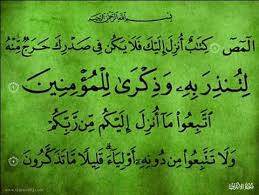 بسم الله الرحمن الرحيم
الٓمٓصٓ كِتَٰبٌ أُنزِلَ إِلَيْكَ فَلَا يَكُن فِى صَدْرِكَ حَرَجٌ مِّنْهُ
لِتُنذِرَ بِهِۦ وَذِكْرَىٰ لِلْمُؤْمِنِينَ
ٱتَّبِعُوا۟ مَآ أُنزِلَ إِلَيْكُم مِّن رَّبِّكُمْ
وَلَا تَتَّبِعُوا۟ مِن دُونِهِۦٓ أَوْلِيَآءَ ۗ قَلِيلًا مَّا تَذَكَّرُونَ